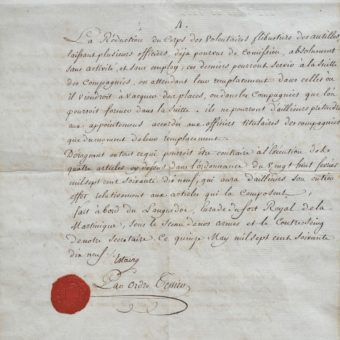 4.
La Réduction du Corps des Volontaires flibustiers des antilles,
laissant plusieurs officiers déja pourvus de Comission, absolument
sans activité, et sans employ, ces derniers pourront servir à la Suitte
des Compagnies en attendant leur remplacement dans celles où
Il viendroit à vaquer des places, ou dans les Compagnies que l'on
pourroit former dans la Suitte; ils ne pourront d'ailleurs prétendre
aux appointemens accordés aux officiers titulaires des compagnies
que du moment de leur remplacement
Dérogeant en tout ce qui pourroit être contraire à l'exécution des
quatre articles cy dessus dans l'ordonnance du Vingt huit fevrier
mil sept cent soixante dix neuf, qui aura d'ailleurs son entier
effet relativement aux articles qui la Composent
fait à bord du Languedoc, en rade du fort Royal de la
Martinique, sous le Sceau de nos armes et le Contreseing
de notre Secretaire. Ce quinze May mil sept cent soixante
dix neuf. Estaing
Par ordre